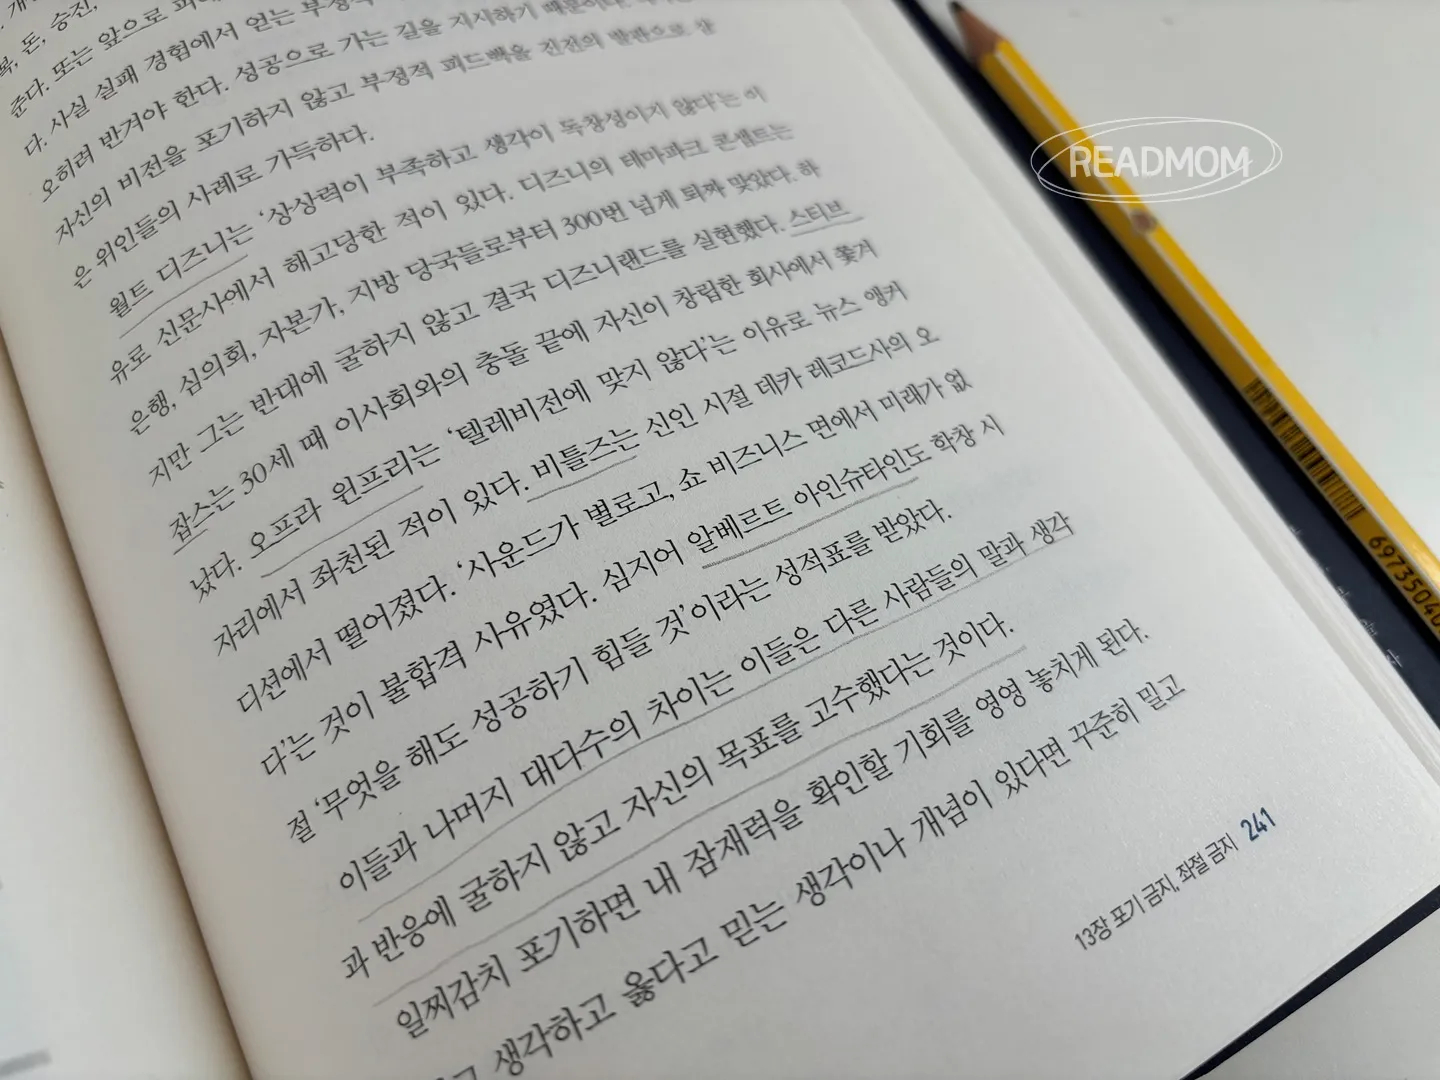 복, 돈, 승진,
준다. 또는 앞으로
다. 사실 실패 경험에서 얻는 부정적
오히려 반겨야 한다. 성공으로 가는 길을 지시하기 때문이다.
자신의 비전을 포기하지 않고 부정적 피드백을 전진의 발판으로 삼
은 위인들의 사례로 가득하다.
월트 디즈니는 ‘상상력이 부족하고 생각이 독창성이지 않다’는 이
유로 신문사에서 해고당한 적이 있다. 디즈니의 테마파크 콘셉트는
은행, 심의회, 자본가, 지방 당국들로부터 300번 넘게 퇴짜 맞았다. 하
지만 그는 반대에 굴하지 않고 결국 디즈니랜드를 실현했다. 스티브
잡스는 30세 때 이사회와의 충돌 끝에 자신이 창립한 회사에서 쫓겨
났다. 오프라 윈프리는 ‘텔레비전에 맞지 않다’는 이유로 뉴스 앵커
자리에서 좌천된 적이 있다. 비틀즈는 신인 시절 데카 레코드사의 오
디션에서 떨어졌다. ‘사운드가 별로고, 쇼 비즈니스 면에서 미래가 없
다’는 것이 불합격 사유였다. 심지어 알베르트 아인슈타인도 학창 시
절 ‘무엇을 해도 성공하기 힘들 것’이라는 성적표를 받았다.
이들과 나머지 대다수의 차이는 이들은 다른 사람들의 말과 생각
과 반응에 굴하지 않고 자신의 목표를 고수했다는 것이다.
일찌감치 포기하면 내 잠재력을 확인할 기회를 영영 놓치게 된다.
생각하고 옳다고 믿는 생각이나 개념이 있다면 꾸준히 밀고
13장 포기 금지, 좌절 금지 241
READMOM